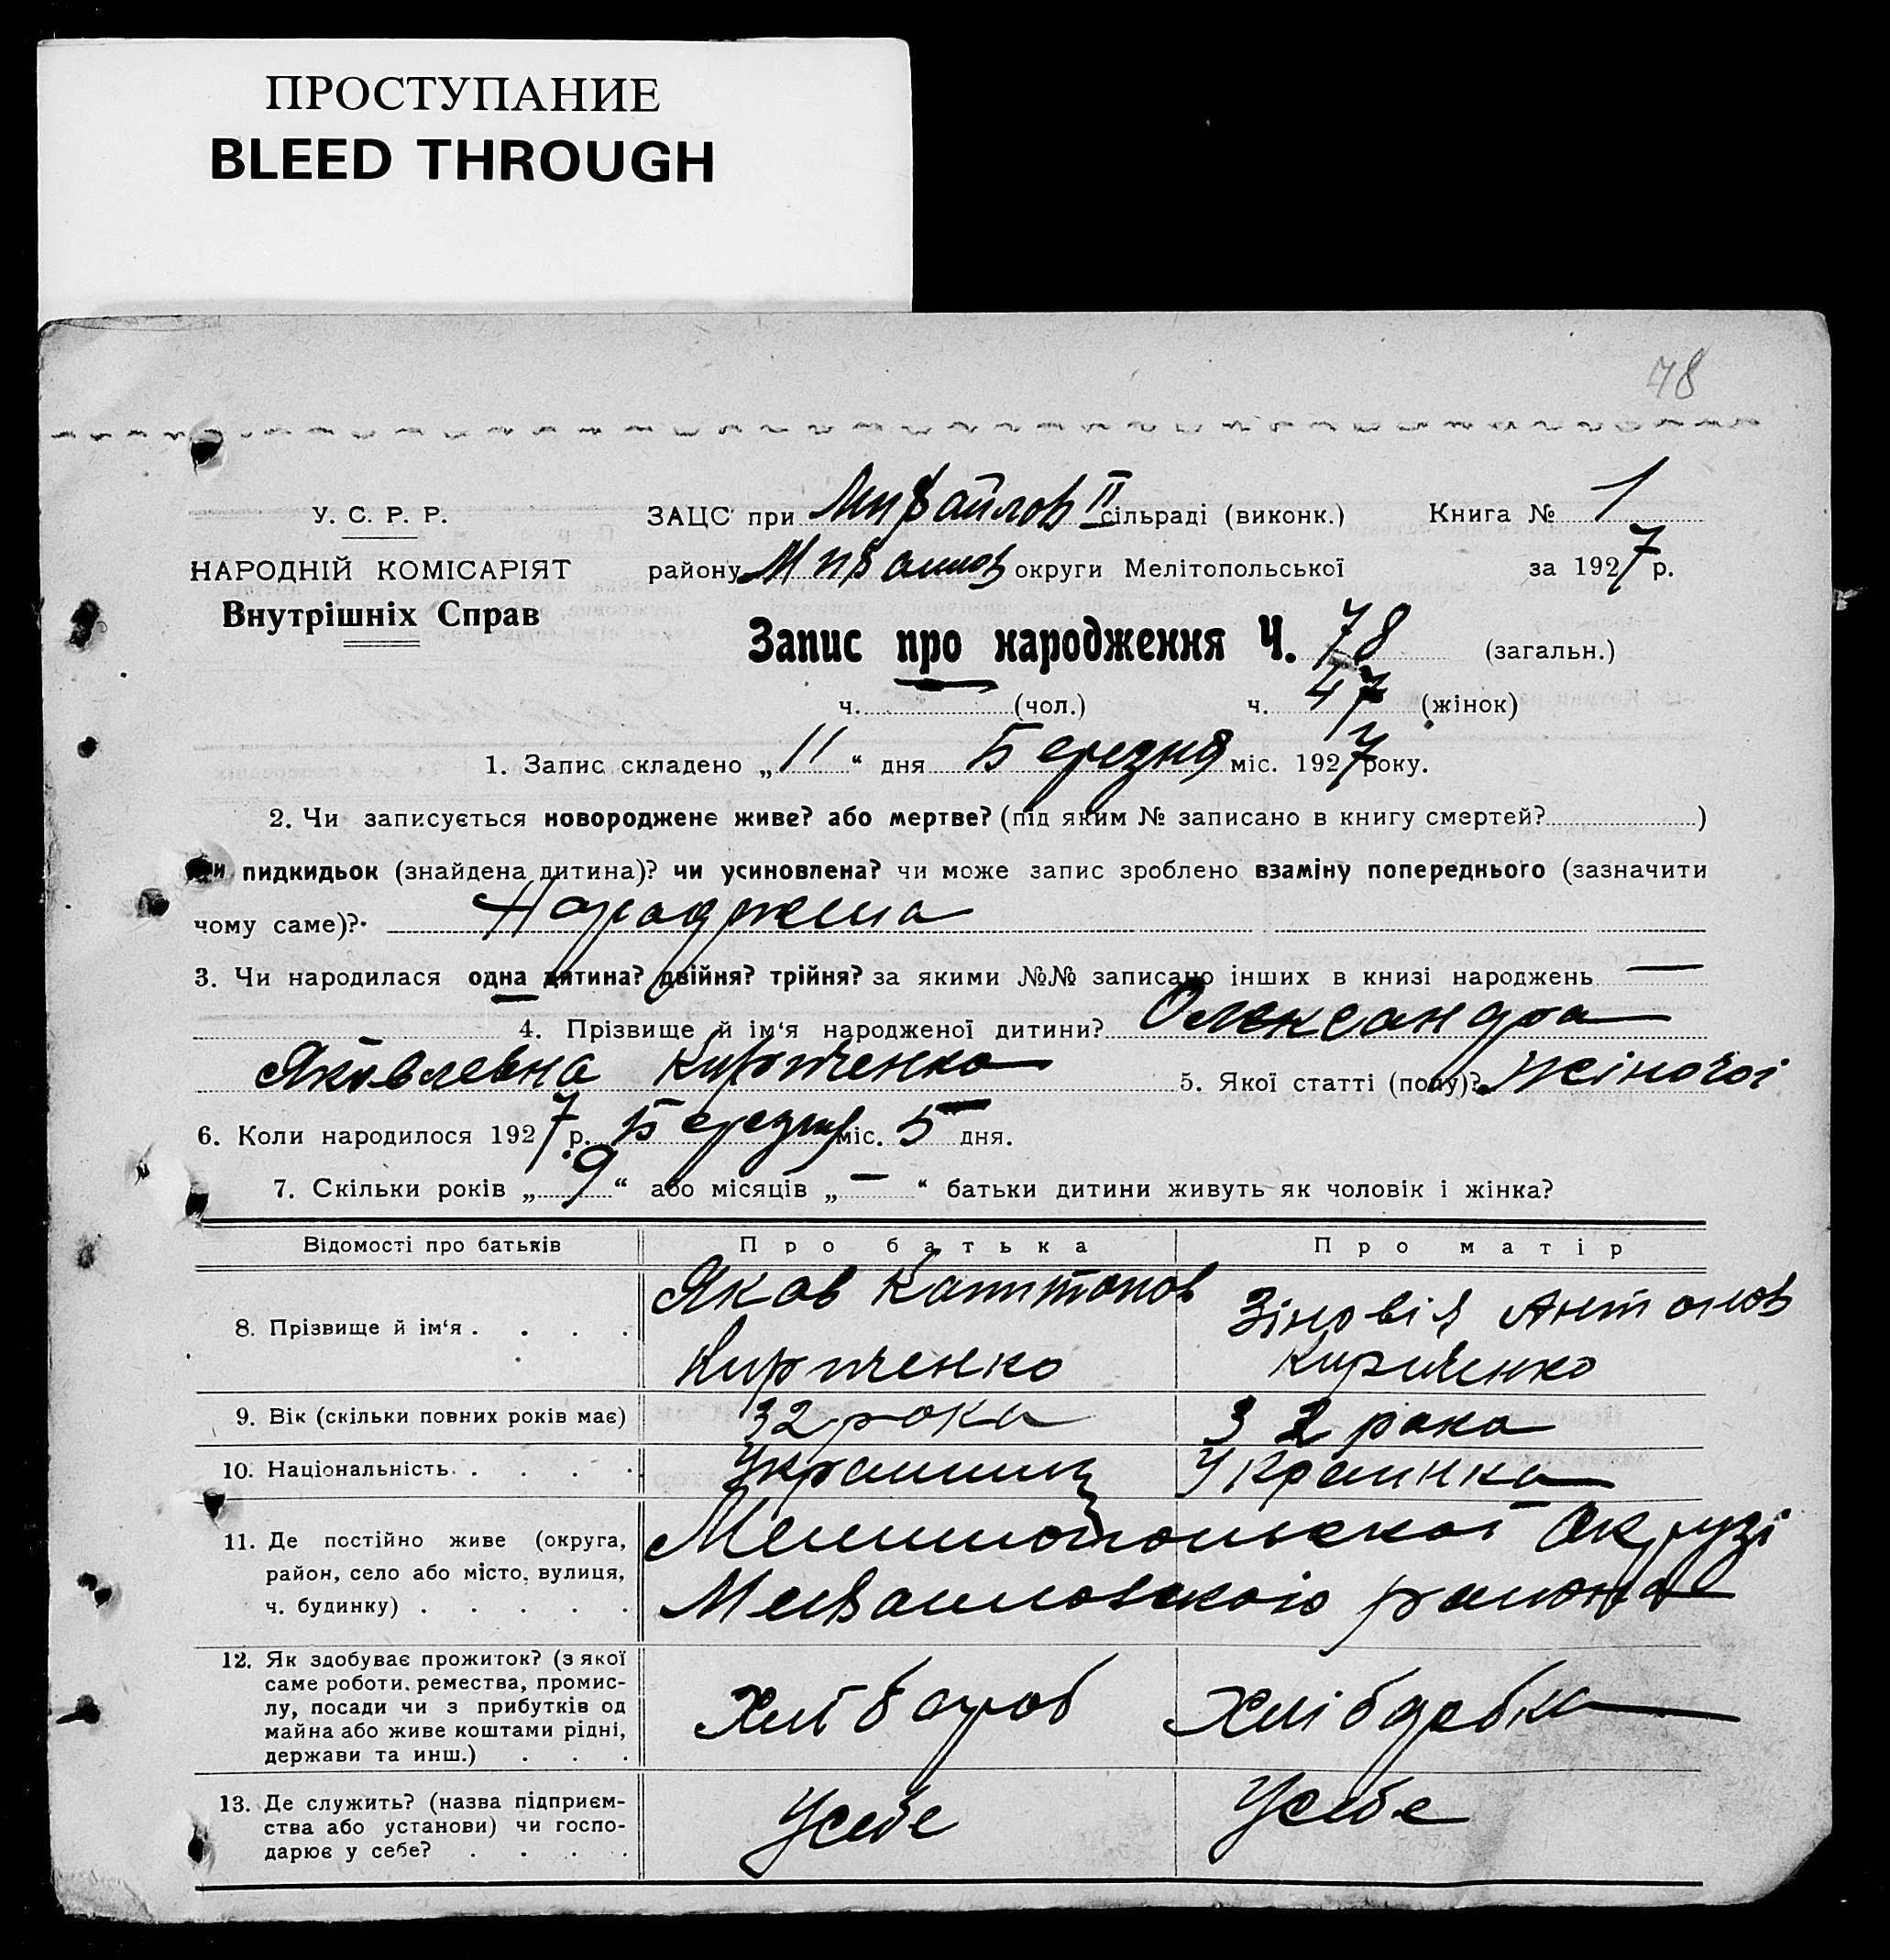 ПРОСТУПАНИЕ
BLEED THROUGH
78
У. С. Р. Р.
НАРОДНІЙ КОМІСАРІЯТ
Внутрішніх Справ
ЗАЦС при Михайлов II сільраді (виконк.) Книга № 1
району Михайлов округи Мелітопольської за 1927 р.
Запис про народження Ч. 78 (загальн.)
ч. (чол.) ч. 47 (жінок)
1. Запис складено „11“ дня Березня міс. 1927 року.
2. Чи записується новороджене живе? або мертве? (під яким № записано в книгу смертей? )
чи пидкидьок (знайдена дитина)? чи усиновлена? чи може запис зроблено взаміну попереднього (зазначити
чому саме)? Народжена
3. Чи народилася одна дитина? двійня? трійня? за якими №№ записано інших в книзі народжень —
4. Прізвище й ім‘я народженої дитини? Олександра
Яковлевна Кириченко 5. Якої статті (полу)? Жіночоі
6. Коли народилося 1927 р. Березня міс. 5 дня.
7. Скільки років „9“ або місяців „—“ батьки дитини живуть як чоловік і жінка?
Відомості про батьків Про батька Про матір
8. Прізвище й ім‘я . . . . Яков Капитонов Кириченко Зіновія Антонов Кириченко
9. Вік (скільки повних років має) 32 рока 32 рока
10. Національність . . . . Украинец Украинка
11. Де постійно живе (округа,
район, село або місто, вулиця,
ч. будинку) . . . . .
Мелитопольскоі Окрузі
Михайловского района
12. Як здобуває прожиток? (з якої
саме роботи, ремества, промис-
лу, посади чи з прибутків од
майна або живе коштами рідні,
держави та инш.) . . .
Хлібороб Хлібборобка
13. Де служить? (назва підприєм-
ства або установи) чи госпо-
дарює у себе? . . . .
Усебе Усебе